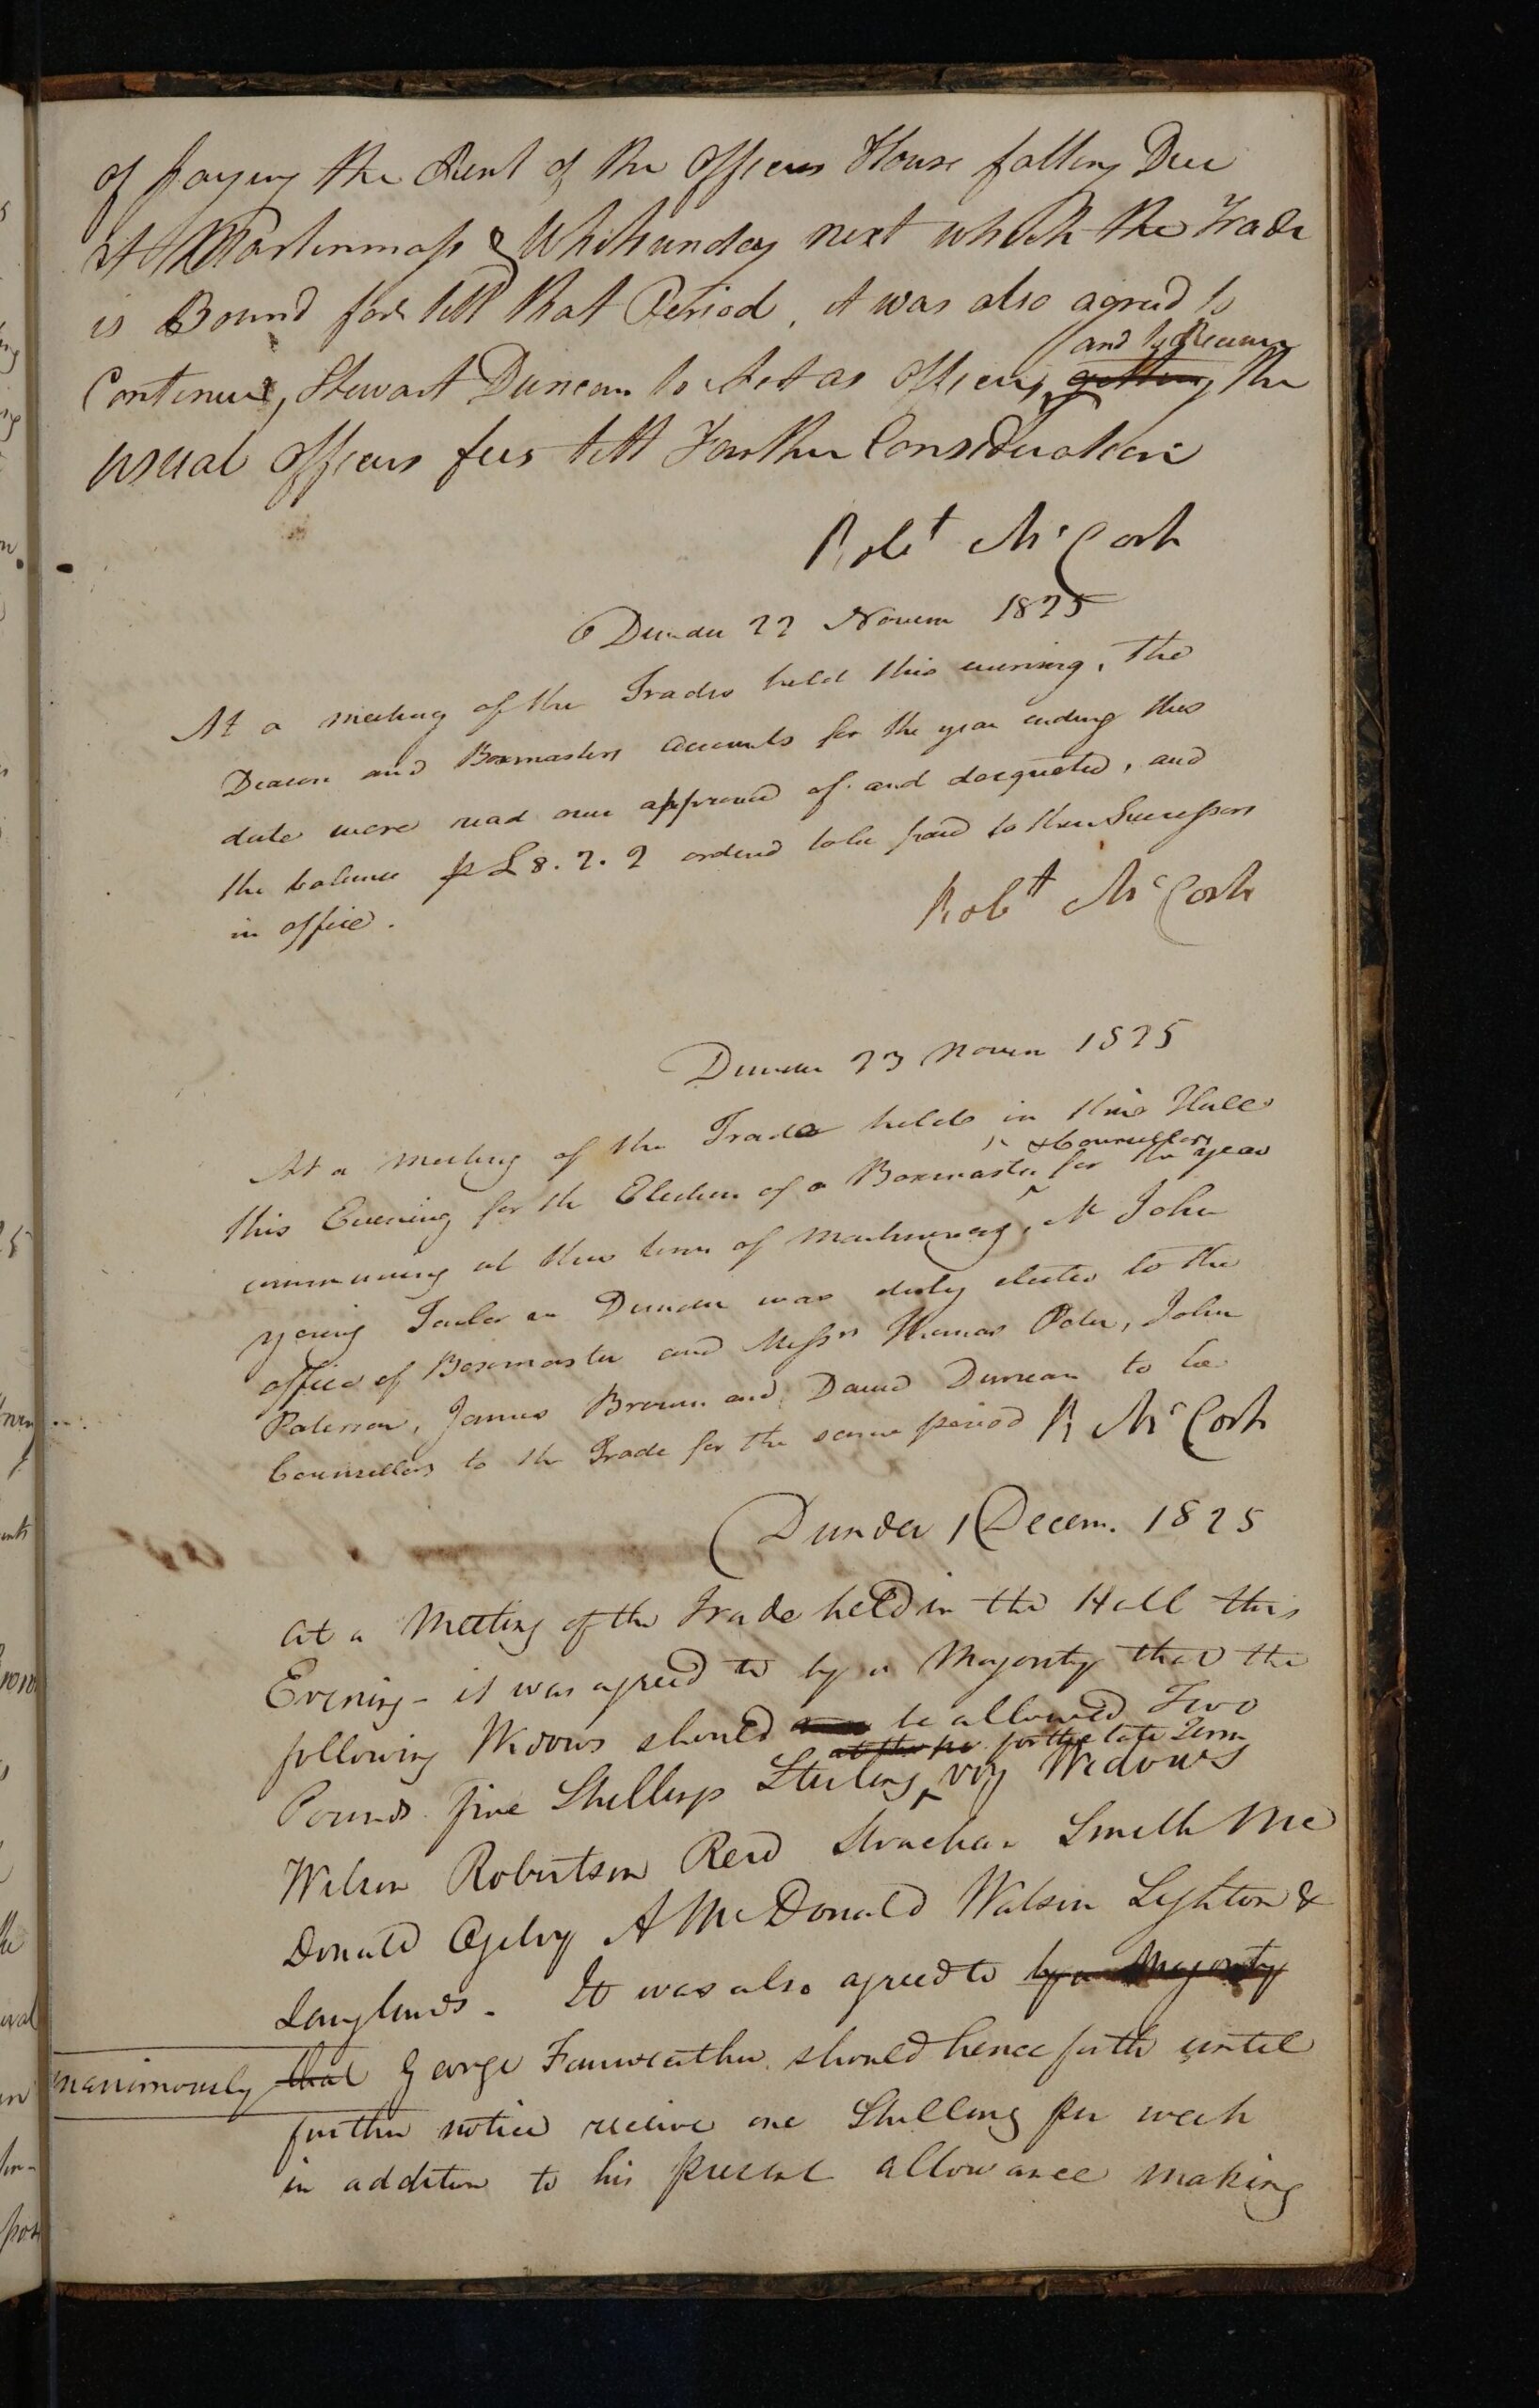 of paying the Rent of the Officers House falling Due
at Martinmass & Whitsunday next which the Trade
is Bound for till that Period, it was also agreed to
and to Receive
Continue, Stewart Duncan to Act as Officer, getting the
usual Officers fees till Farther Consideration
Robt McCosh
Dundee 22 Novem 1825
At a meeting of the Trades held this evening, the
Deacon and Boxmasters accounts for the year ending this
date were read over approved of and docqueted, and
the balance p £8.2.2 orderd to be paid to their Successors
in office.
Robt McCosh
Dundee 23 Novem 1825
At a meeting of the Trade held in their Hall
& Counsellors
this Evening for the Election of a Boxmaster for the year
commencing at this term of Martinmas, Mr John
Young Tailor in Dundee was duly elected to the
office of Boxmaster and Messrs Thomas Peter, John
Paterson, James Brown and David Duncan to be
Counsellors to the Trade for the same period R McCosh
Dundee 1 Decem. 1825
At a Meeting of the Trade held in the Hall this
Evening - it was agreed to by a Majority that the
following Widows should be allowed Two
for the late Term
Pounds five Shillings Sterling, viz Widows
Wilson Robertson Reid Strachan Smith Mc
Donald Ogilvy A McDonald Watson Lighton &
Langlands. It was also agreed to by a Majority
unanimously that George Fairweather should hence forth until
further notice receive one Shilling per week
in addition to his present allowance making